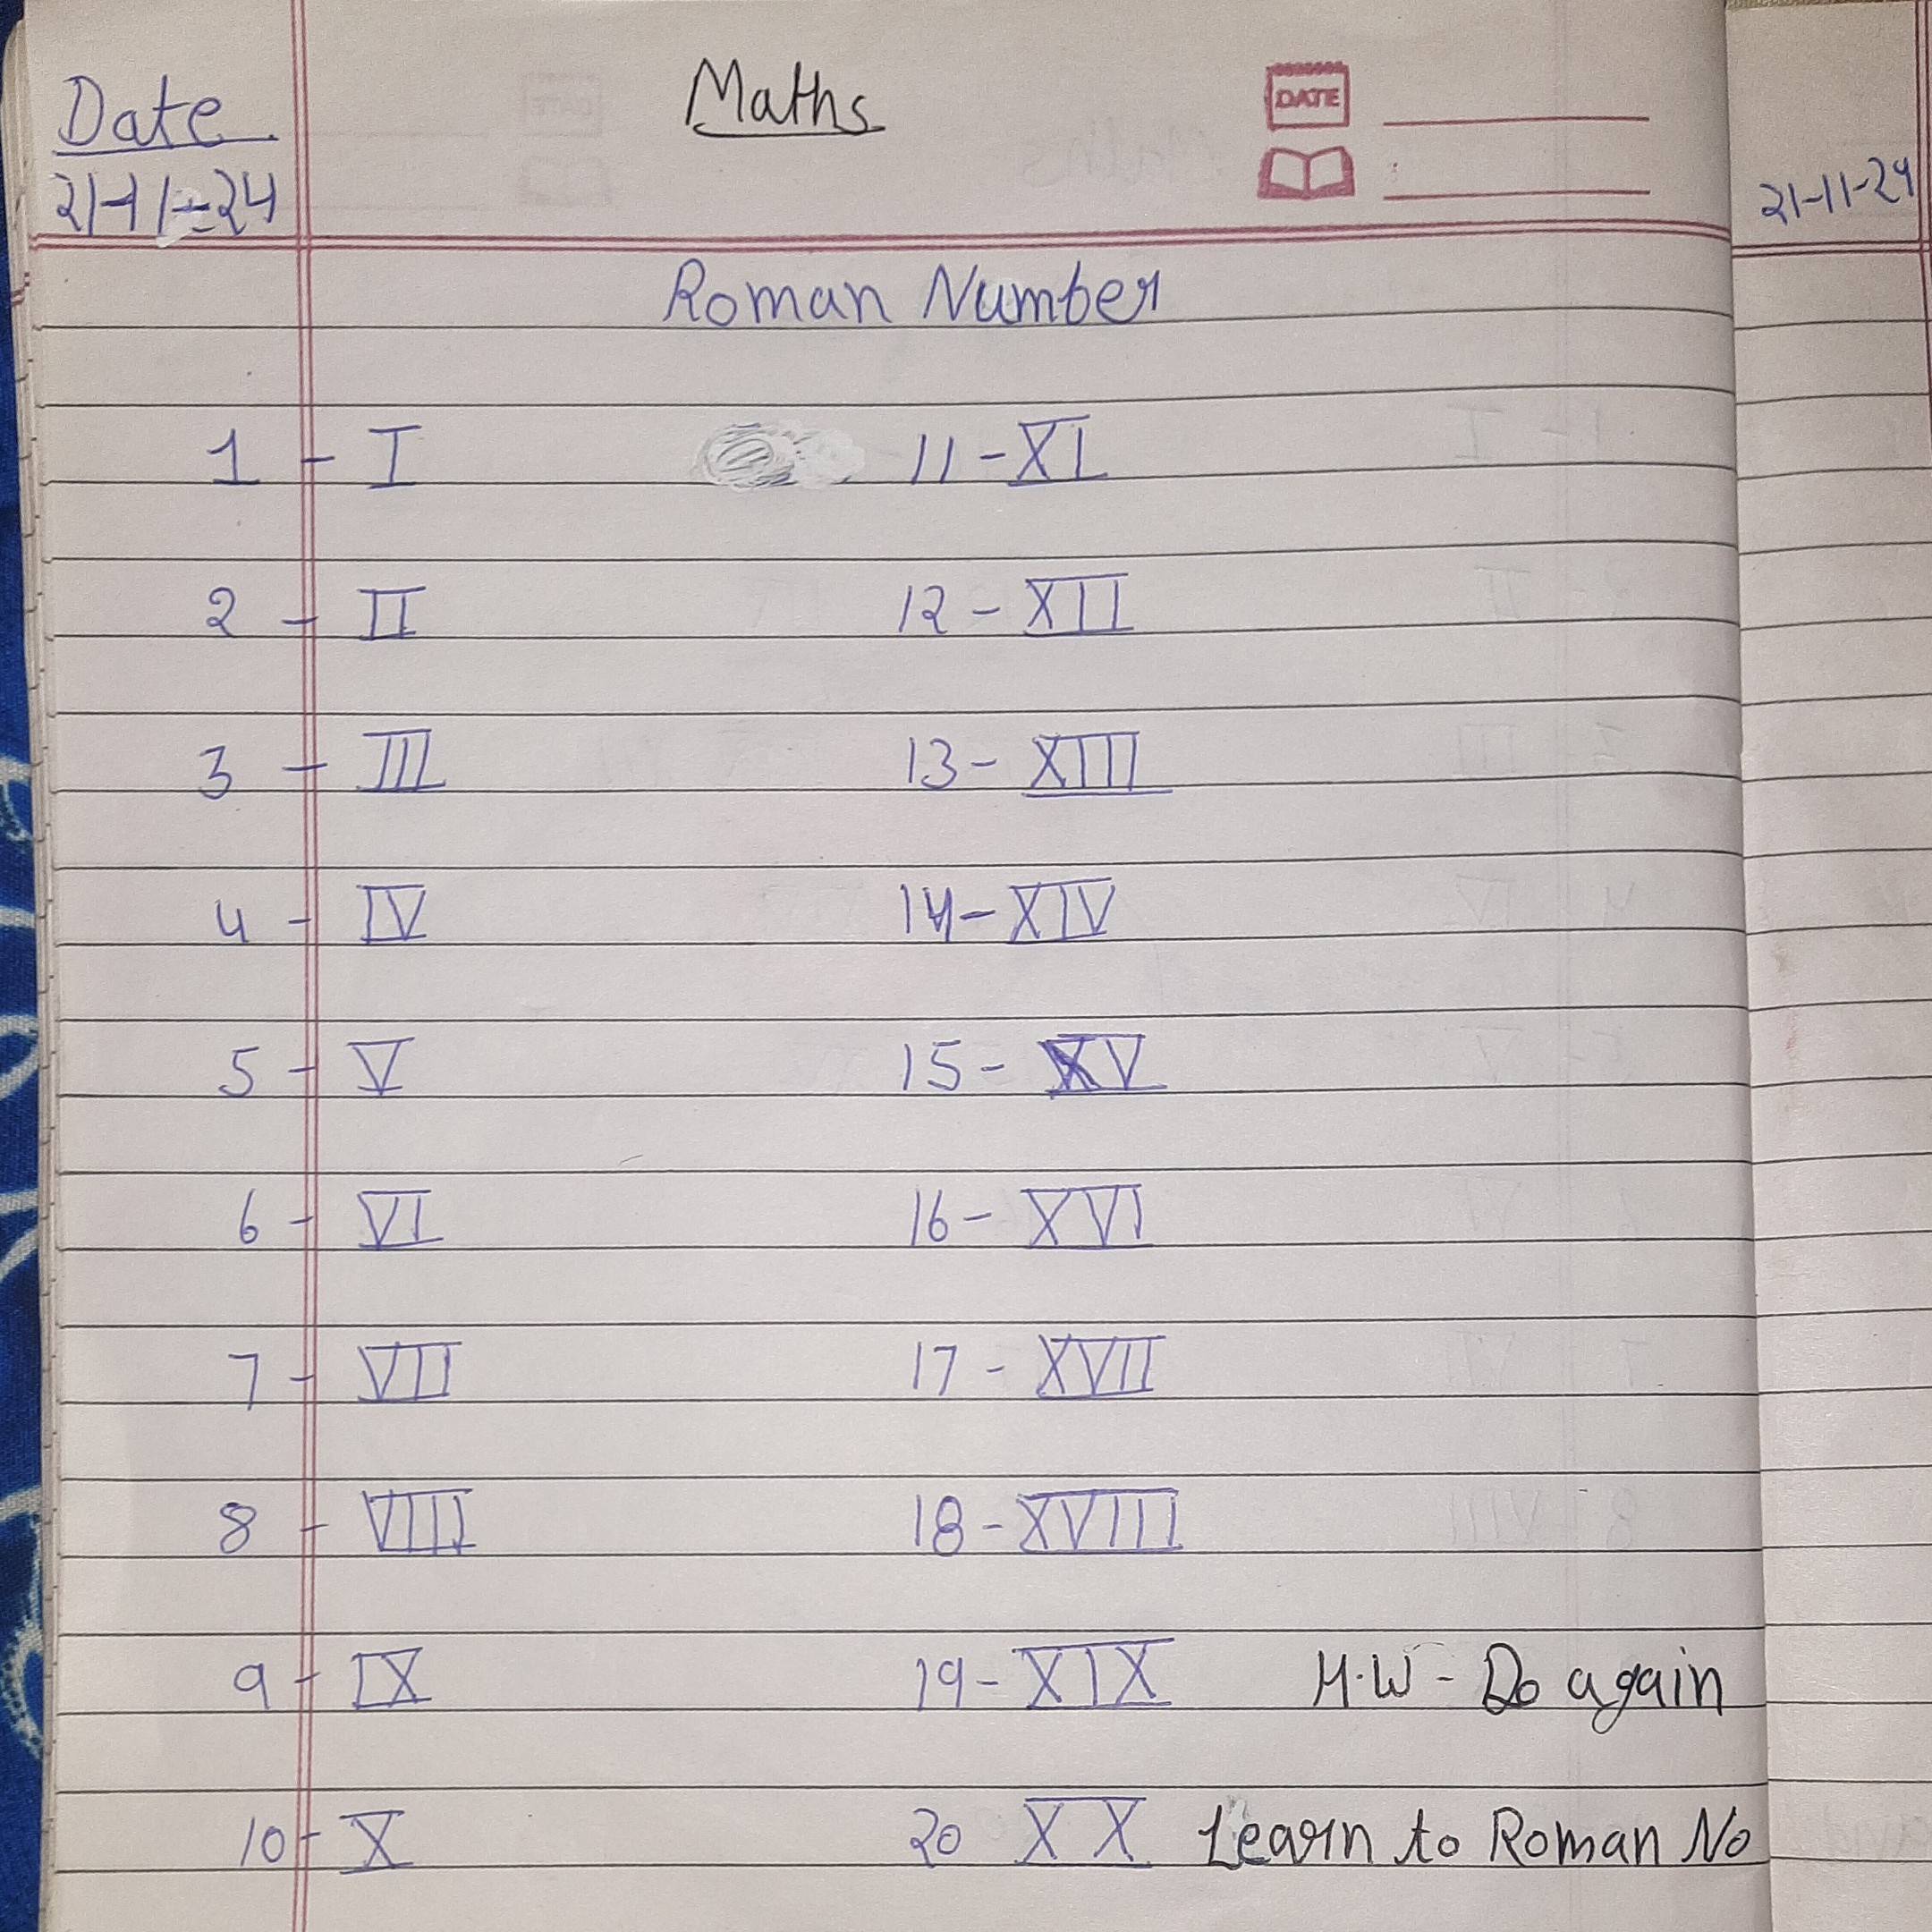 Date
Maths
DATE
21-11-24
21-11-24
Roman Number
1 - I 11 - XI
2 - II 12 - XII
3 - III 13 - XIII
4 - IV 14 - XIV
5 - V 15 - XV
6 - VI 16 - XVI
7 - VII 17 - XVII
8 - VIII 18 - XVIII
9 - IX 19 - XIX H.W - Do again
10 - X 20 XX Learn to Roman No